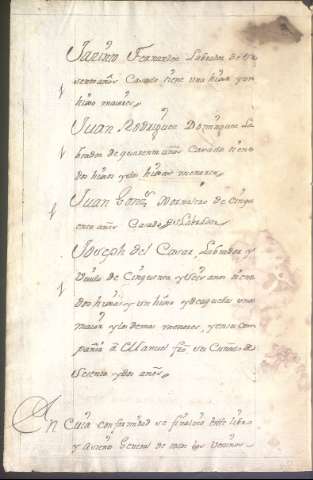 Jazinto Fernandez Labrador de se
senta años Casado tiene una hija y un
hijo menores
Juan Rodriguez Dominguez La
brador de quarenta años Casado tiene
dos hijos y dos hijas menores
Juan Gonz Jornalero de Cinq
enta años Casado
Joseph del Casar, Labrador y
Viudo de Cinquenta y seis años tiene
dos hijas y un hijo y de aquellas una
maior y los demas menores, y en su com
pañia a Manuel su Cuñado de
sesenta y dos años
En Cuia conformidad se finalizo este libro
y de todos los Vecinos